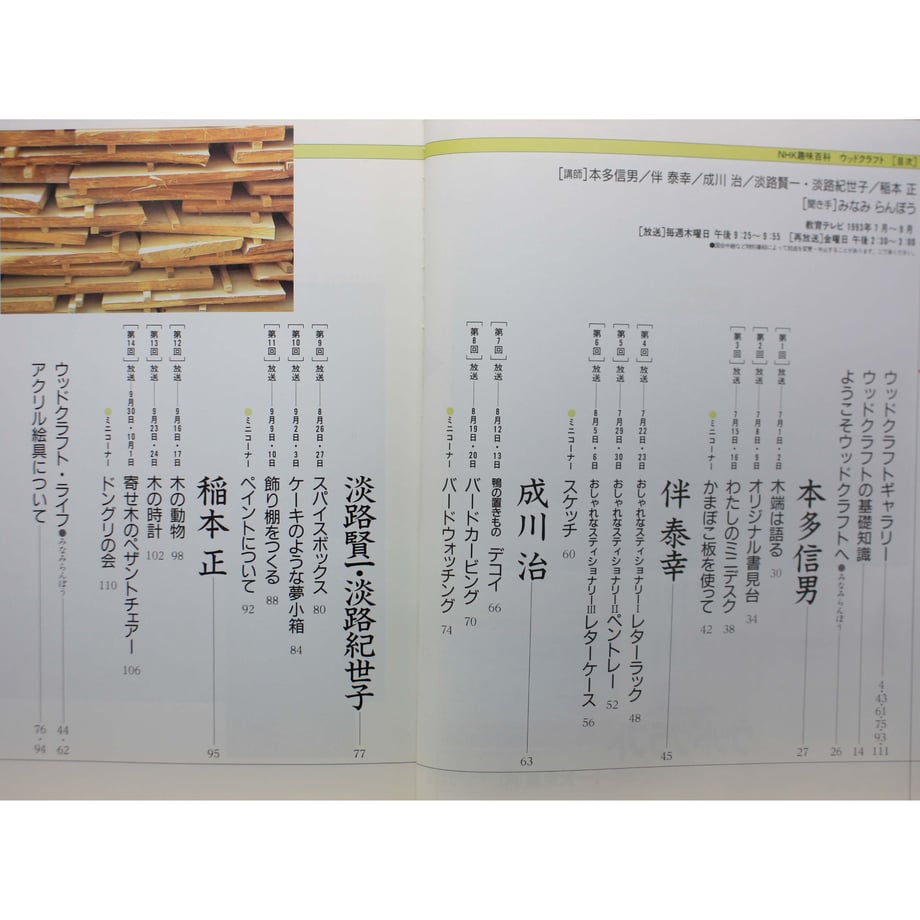 NHK趣味百科 ウッドクラフト [目次]
[講師]本多信男/伴 泰幸/成川 治/淡路賢一・淡路紀世子/稲本 正
[聞き手]みなみ らんぼう
教育テレビ 1993年7月〜9月
[放送]毎週木曜日 午後9:25〜9:55 [再放送]金曜日 午後2:30〜3:00
●国会中継など特別番組によって放送を変更・中止することがあります。ご了承ください。
ウッドクラフトギャラリー 4・43・61・75・93・111
ウッドクラフトの基礎知識 14
ようこそウッドクラフトへ●みなみらんぼう 26
本多信男 27
[第1回]放送 7月1日・2日 木端は語る 30
[第2回]放送 7月8日・9日 オリジナル書見台 34
[第3回]放送 7月15日・16日 わたしのミニデスク 38
●ミニコーナー かまぼこ板を使って 42
伴 泰幸 45
[第4回]放送 7月22日・23日 おしゃれなスティショナリーI レターラック 48
[第5回]放送 7月29日・30日 おしゃれなスティショナリーII ペントレー 52
[第6回]放送 8月5日・6日 おしゃれなスティショナリーIII レターケース 56
●ミニコーナー スケッチ 60
成川 治 63
[第7回]放送 8月12日・13日 鴨の置きもの デコイ 66
[第8回]放送 8月19日・20日 バードカービング 70
●ミニコーナー バードウォッチング 74
淡路賢一・淡路紀世子 77
[第9回]放送 8月26日・27日 スパイスボックス 80
[第10回]放送 9月2日・3日 ケーキのような夢小箱 84
[第11回]放送 9月9日・10日 飾り棚をつくる 88
●ミニコーナー ペイントについて 92
稲本 正 95
[第12回]放送 9月16日・17日 木の動物 98
[第13回]放送 9月23日・24日 木の時計 102
[第14回]放送 9月30日・10月1日 寄せ木のペザントチェアー 106
●ミニコーナー ドングリの会 110
ウッドクラフト・ライフ●みなみらんぼう 44・62
アクリル絵具について 76・94